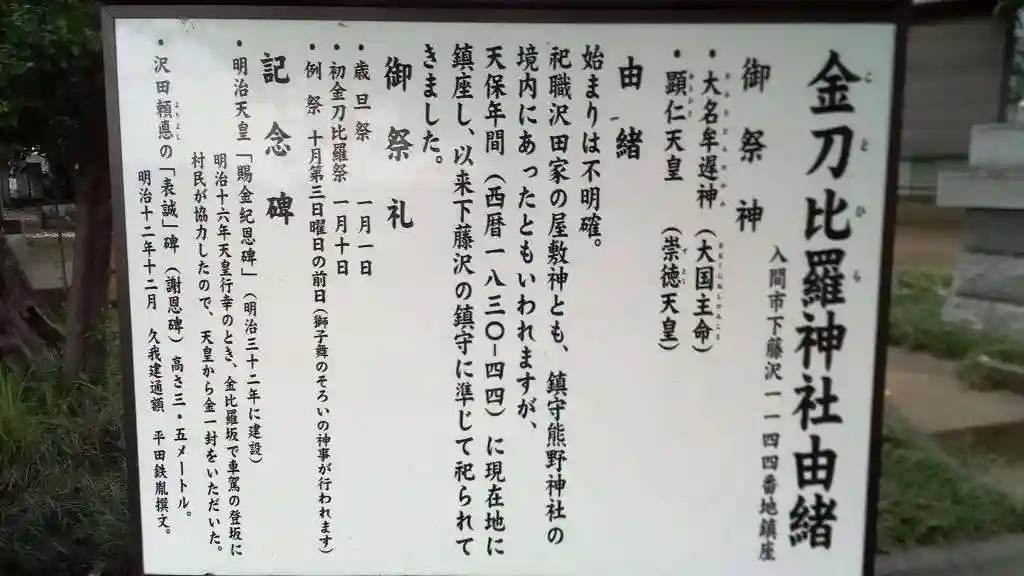 金刀比羅神社由緒
ことひら
入間市下藤沢一一四四番地鎮座
御祭神
・大名牟遅神（大国主命）
・顕仁天皇（崇徳天皇）
由緒
始まりは不明確。
祀職沢田家の屋敷神とも、鎮守熊野神社の
境内にあったともいわれますが、
天保年間（西暦一八三〇ー四四）に現在地に
鎮座し、以来下藤沢の鎮守に準じて祀られて
きました。
御祭礼
・歳旦祭 一月一日
・初金刀比羅祭 一月十日
・例祭 十月第三日曜日の前日（獅子舞のそろいの神事が行われます）
記念碑
・明治天皇「賜金紀恩碑」（明治三十二年に建設）
明治十六年天皇行幸のとき、金比羅坂で車駕の登坂に
村民が協力したので、天皇から金一封をいただいた。
・沢田頼悳の「表誠」碑（謝恩碑）高さ三・五メートル。
よりよし
明治十二年十二月 久我建通額 平田鉄胤撰文。